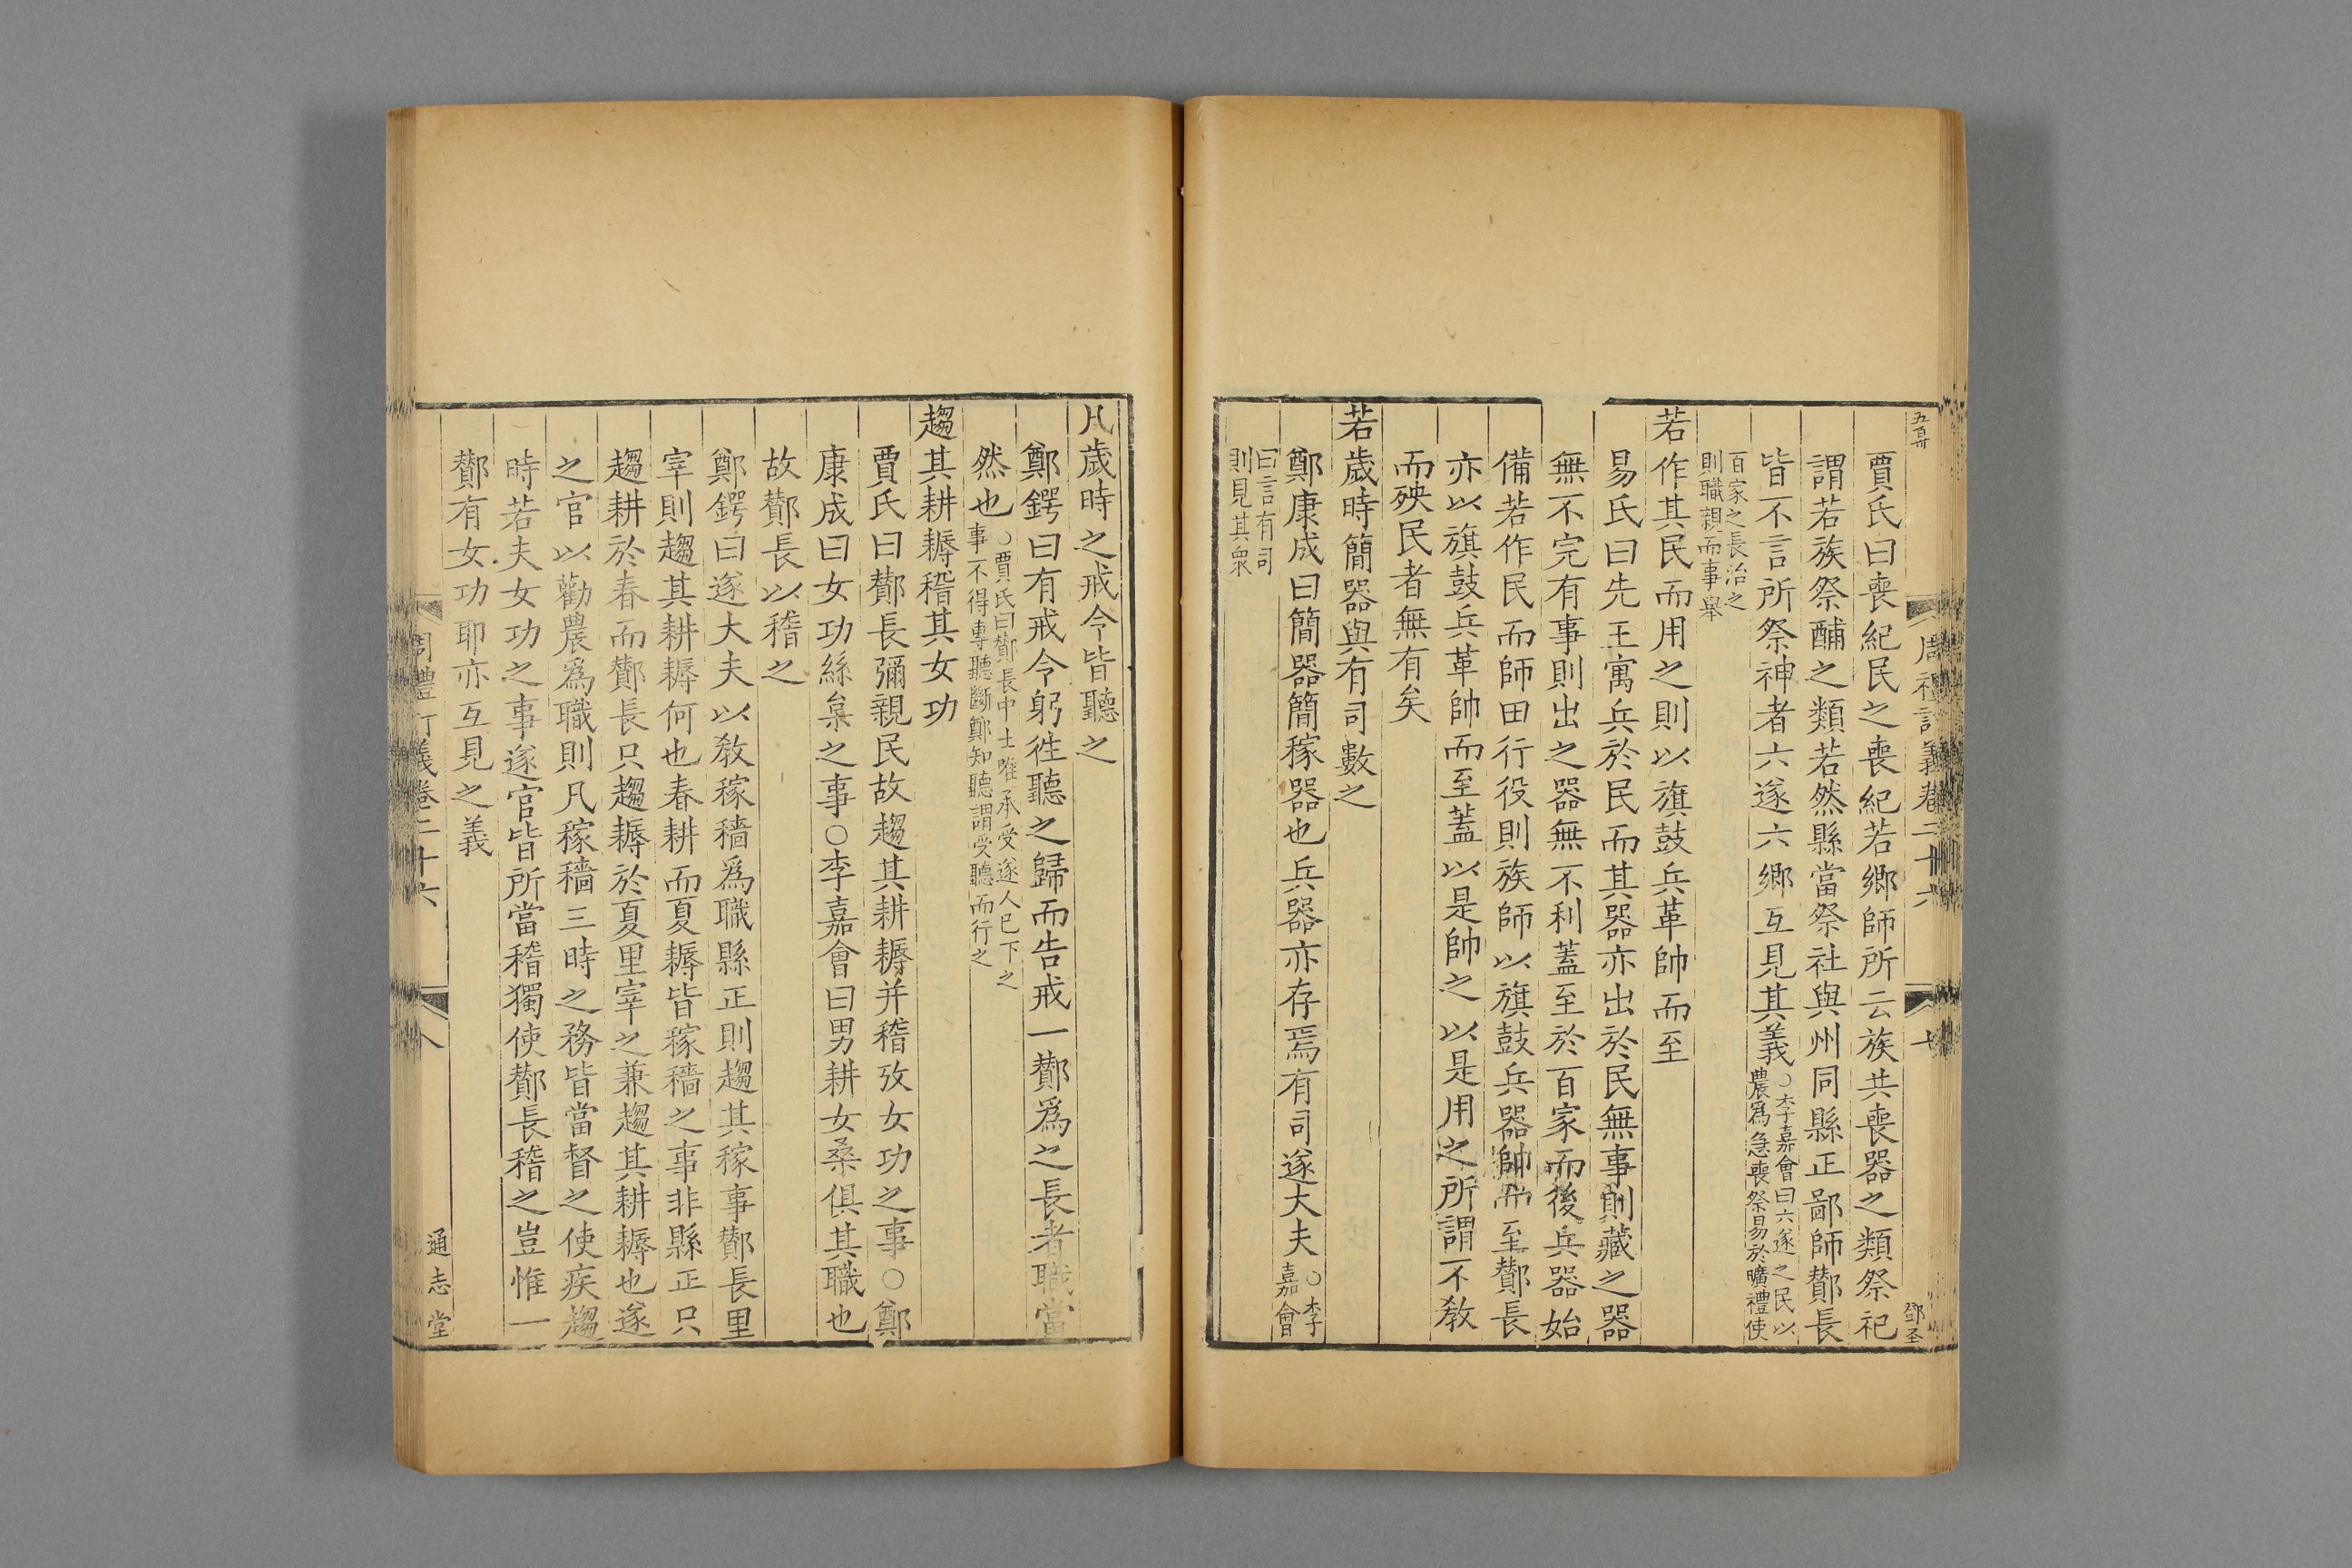 賈氏曰喪紀民之喪紀若鄉師所云族共喪器之類祭祀
謂若族祭酺之類若然縣當祭社與州同縣正鄙師酇長
皆不言所祭神者六遂六鄉互見其義○李嘉會曰六遂之民以
農為急喪祭易於曠禮使
百家之長治之
則職親而事舉
若作其民而用之則以旗鼓兵革帥而至
易氏曰先王寓兵於民而其器亦出於民無事則藏之器
無不完有事則出之器無不利蓋至於百家而後兵器始
備若作民而師田行役則族師以旗鼓兵器帥而至酇長
亦以旗鼓兵革帥而至蓋以是帥之以是用之所謂不敎
而殃民者無有矣
若歲時簡器與有司數之
鄭康成曰簡器簡稼器也兵器亦存焉有司遂大夫○李
嘉會
曰言有司
則見其衆
周禮訂義卷二十六
七
鄧圣
凡歲時之戒令皆聽之
鄭鍔曰有戒令躬徃聽之歸而告戒一酇爲之長者職當
然也○賈氏曰酇長中士唯承受遂人已下之
事不得專聽斷鄭知聽謂受聽而行之
趨其耕耨稽其女功
賈氏曰酇長彌親民故趨其耕耨并稽攷女功之事○鄭
康成曰女功絲枲之事○李嘉會曰男耕女桑俱其職也
故酇長以稽之
鄭鍔曰遂大夫以敎稼穡爲職縣正則趨其稼事酇長里
宰則趨其耕耨何也春耕而夏耨皆稼穡之事非縣正只
趨耕於春而酇長只趨耨於夏里宰之兼趨其耕耨也遂
之官以勸農爲職則凡稼穡三時之務皆當督之使疾趨
時若夫女功之事遂官皆所當稽獨使酇長稽之豈惟一
酇有女功耶亦互見之義
周禮訂義卷二十六
八
通志堂